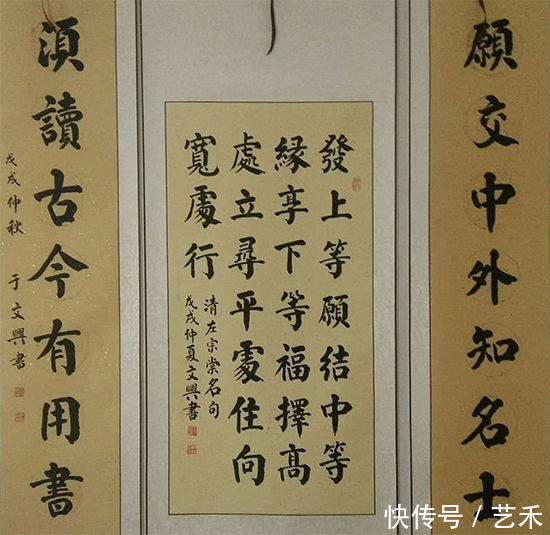 願交中外知名士
發上等願結中等
緣享下等福擇高
處立尋平處住向
寬處行
清左宗棠名句
戊戌仲夏文興書
湏讀古今有用書
戊戌仲秋 于文興書
快传号 / 艺禾